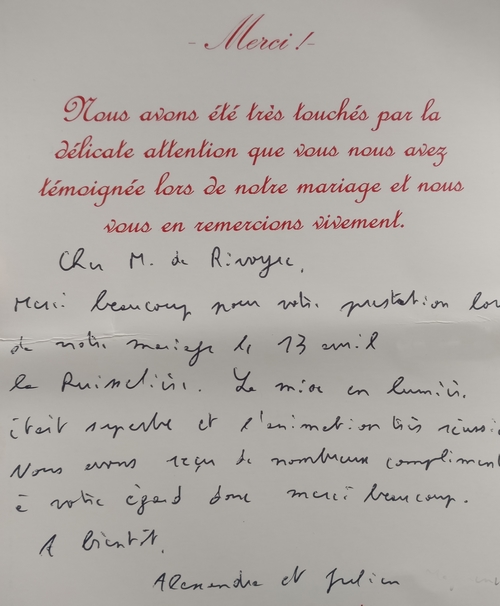 - Merci ! -
Nous avons été très touchés par la
délicate attention que vous nous avez
témoignée lors de notre mariage et nous
vous en remercions vivement.
Cher M. de Rivoyre,
Merci beaucoup pour votre prestation lors
de notre mariage le 13 avril
la Ruisselière. La mise en lumière
était superbe et l'animation très réussie
Nous avons reçu de nombreux compliment
à votre égard donc merci beaucoup.
A bientôt,
Alexandra et Julien